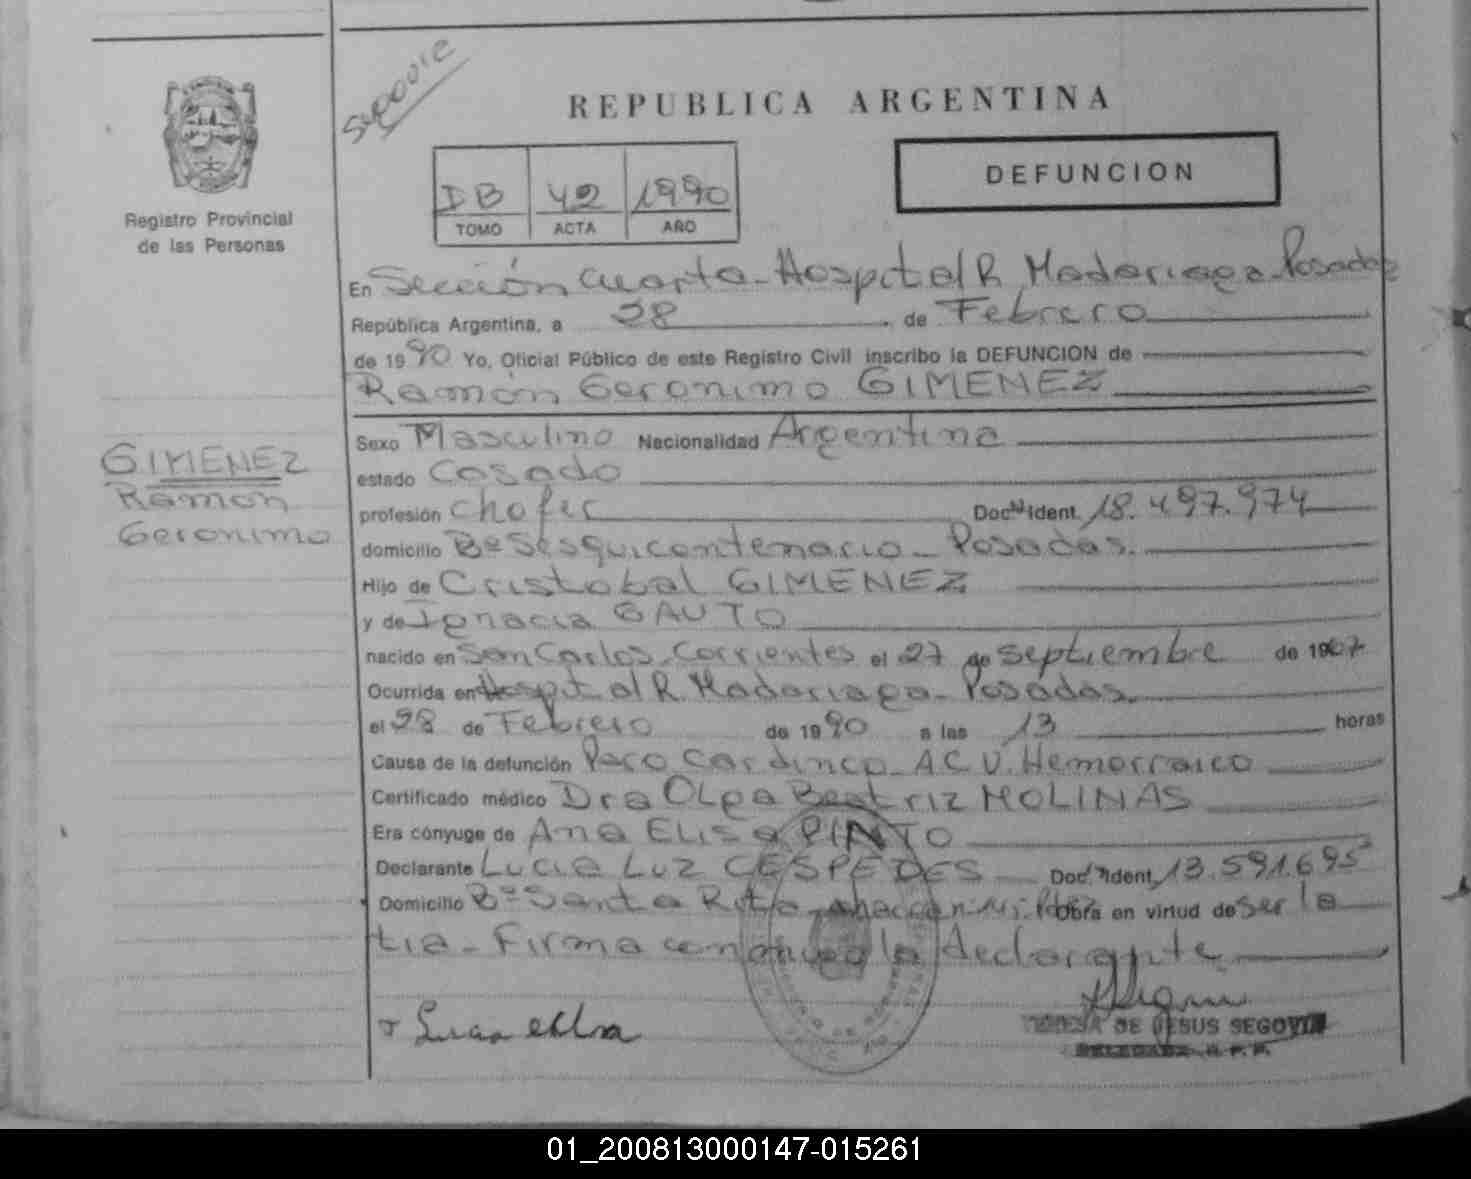 REPUBLICA ARGENTINA
DEFUNCION
DB 42 1990
TOMO ACTA AÑO
Registro Provincial
de las Personas
En Sección Cuarta - Hospital R. Madariaga Posadas
República Argentina, a 28 de Febrero
de 1990 Yo, Oficial Público de este Registro Civil inscribo la DEFUNCION de
Ramón Geronimo GIMENEZ
GIMENEZ
Ramón
Geronimo
Sexo Masculino Nacionalidad Argentina
estado Casado
profesión chofer Doc. Ident. 18.497.974
domicilio Bº Sesquicentenario - Posadas.
Hijo de Cristobal GIMENEZ
y de Ignacia GAUTO
nacido en San Carlos - Corrientes el 27 de septiembre de 1967
Ocurrida en Hospital R. Madariaga - Posadas.
el 28 de Febrero de 1990 a las 13 horas
Causa de la defunción Paro Cardiaco - A.C.V. Hemorraico
Certificado médico Dra Olga Beatriz MOLINAS
Era cónyuge de Ana Elisa PINTO
Declarante Lucia Luz CESPEDES Doc. Ident. 13.591.695
Domicilio Bº Santa Rita - Obra en virtud de ser la
tia - Firma conmigo la declarante
TERESA DE JESUS SEGOVIA
DELEGADA R.P.P.
01_200813000147-015261